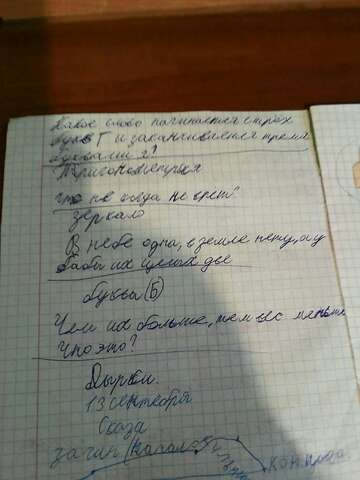 Какое слово начинается с трёх
букв Г и заканчивается тремя
буквами я?
Тригонометрия
Что не когда не врёт?
зеркало
В небе одна, в земле нету, а у
бабы их целых две
буквы (б)
Чем их больше, тем вес меньше
Что это?
Дырки.
13 сентября
Сказа
зачин (начало)
концовка